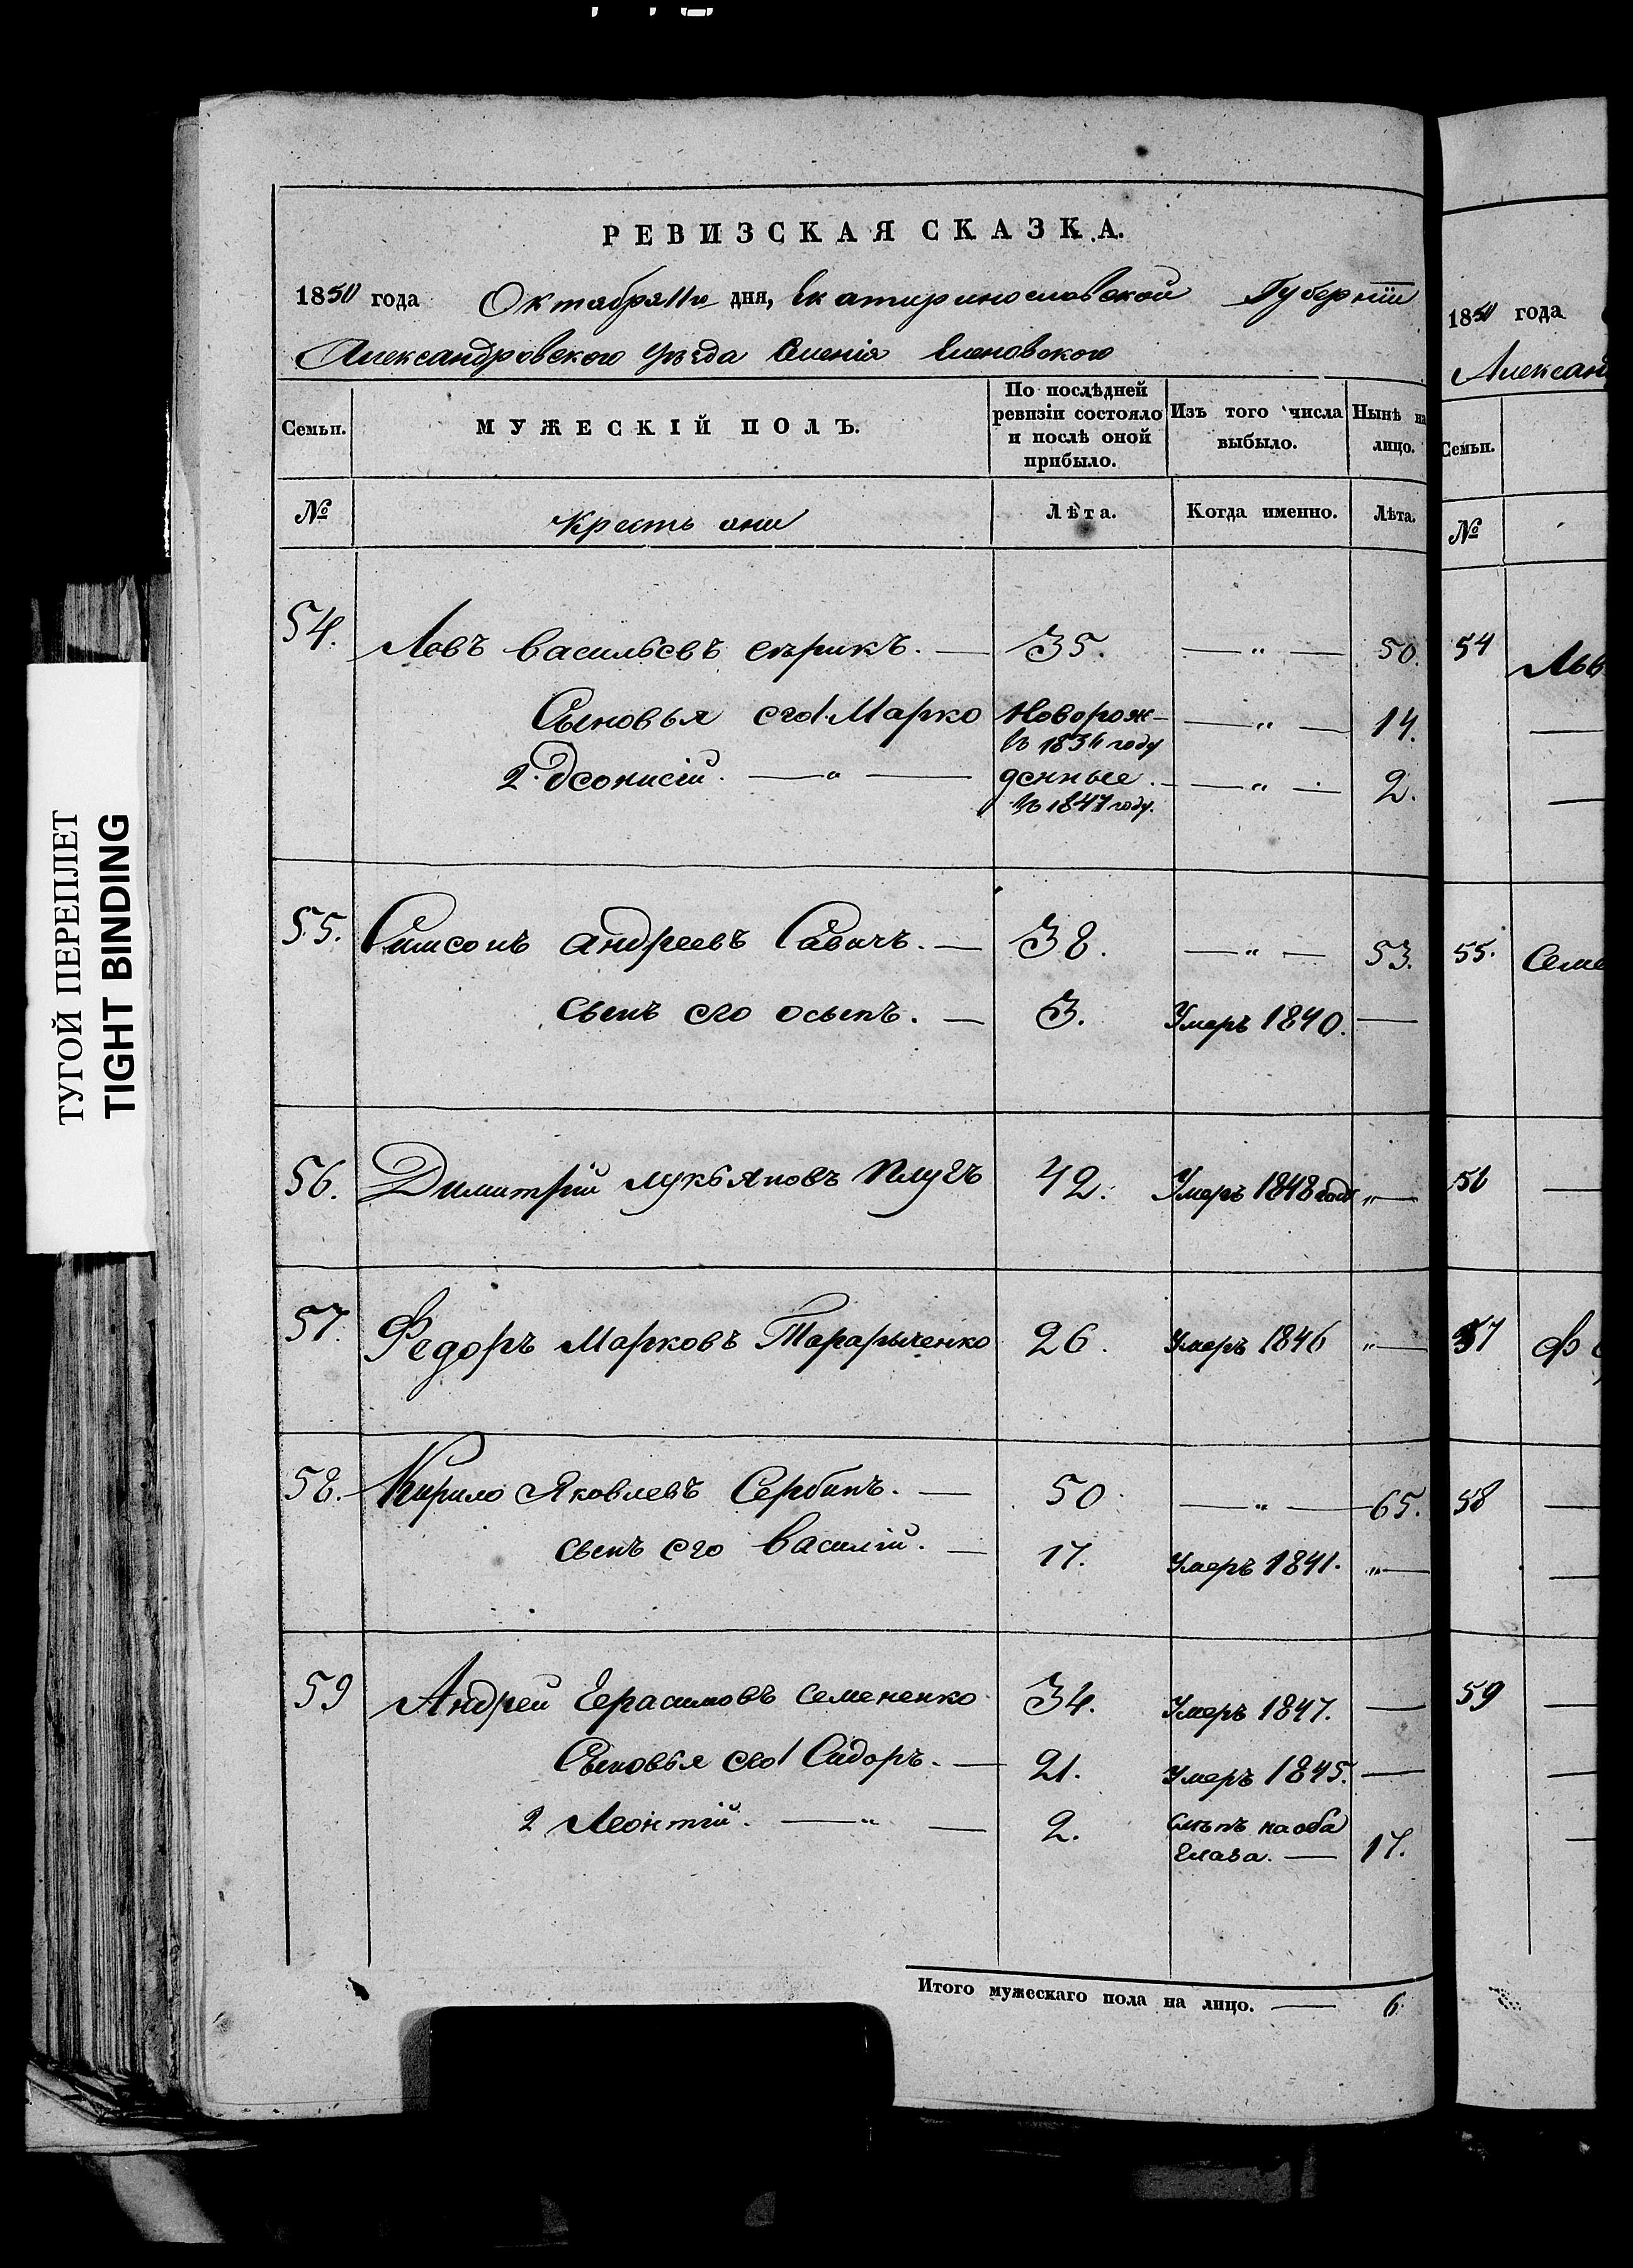 ТУГОЙ ПЕРЕПЛЕТ
TIGHT BINDING
РЕВИЗСКАЯ СКАЗКА.
1850 года Октября 11го дня, Екатеринославской Губерніи
Александровского уѣзда Селенія Еленовского
Семьи. МУЖЕСКІЙ ПОЛЪ. По послѣдней ревизіи состояло и послѣ оной прибыло. Изъ того числа выбыло. Нынѣ на лицо.
№ Крестьяне Лѣта. Когда именно. Лѣта.
54. Левъ Васильевъ — 35. — " — 50.
Сыновья его 1. Марко Новорож- — " — 14.
въ 1836 году
2. Деонисій. — " — денные. — " — 2.
въ 1847 году.
55. Симсонъ Андреевъ Савичъ. — 38. — " — 53.
сынъ его Осыпъ. — 3. Умеръ 1840. —
56. Димитрій Лукьяновъ Плугъ 42. Умеръ 1848 года " —
57. Федоръ Марковъ Тарарыченко 26. Умеръ 1846 " —
58. Кирило Яковлевъ Сербинъ. — 50 — " — 65.
сынъ его Василій. — 17. Умеръ 1841. " —
59 Андрей Герасимовъ Семененко 34. Умеръ 1847. —
Сыновья его 1 Сидоръ. — 21. Умеръ 1845. —
2 Леонтій. — " — 2. Слѣпъ на оба
Глаза. — 17.
Итого мужескаго пола на лицо. — 6
1850 года
Александ
Семьи.
№
54 Льв
55. Семе
56 —
57 Ф
58 —
59 —